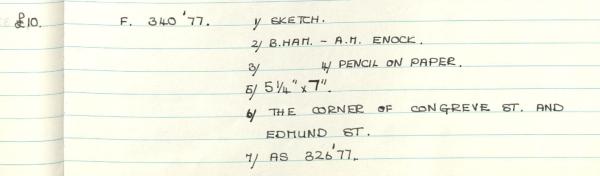 £10. F. 340 '77. 1/ SKETCH.
2/ B.HAM. - A.M. ENOCK.
3/ 4/ PENCIL ON PAPER.
5/ 5 1/4" x 7".
6/ THE CORNER OF CONGREVE ST. AND
EDMUND ST.
7/ AS 326'77.